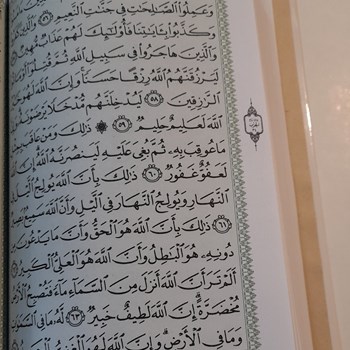 وَعَمِلُوا۟ ٱلصَّٰلِحَٰتِ فِى جَنَّٰتِ ٱلنَّعِيمِ ٥٦ وَٱلَّذِينَ
وَكَذَّبُوا۟ بِـَٔايَٰتِنَا فَأُو۟لَٰٓئِكَ لَهُمْ عَذَابٌ مُّهِينٌ
وَٱلَّذِينَ هَاجَرُوا۟ فِى سَبِيلِ ٱللَّهِ ثُمَّ قُتِلُوٓا۟
لَيَرْزُقَنَّهُمُ ٱللَّهُ رِزْقًا حَسَنًا وَإِنَّ ٱللَّهَ لَهُوَ
ٱلرَّٰزِقِينَ ٥٨ لَيُدْخِلَنَّهُم مُّدْخَلًا يَرْضَوْنَهُۥ
ٱللَّهَ لَعَلِيمٌ حَلِيمٌ ٥٩ ۞ ذَٰلِكَ وَمَنْ عَاقَبَ
مَا عُوقِبَ بِهِۦ ثُمَّ بُغِىَ عَلَيْهِ لَيَنصُرَنَّهُ ٱللَّهُ إِنَّ
لَعَفُوٌّ غَفُورٌ ٦٠ ذَٰلِكَ بِأَنَّ ٱللَّهَ يُولِجُ
ٱلنَّهَارِ وَيُولِجُ ٱلنَّهَارَ فِى ٱلَّيْلِ وَأَنَّ ٱللَّهَ سَمِيعٌۢ بَصِيرٌ
٦١ ذَٰلِكَ بِأَنَّ ٱللَّهَ هُوَ ٱلْحَقُّ وَأَنَّ مَا يَدْعُونَ
دُونِهِۦ هُوَ ٱلْبَٰطِلُ وَأَنَّ ٱللَّهَ هُوَ ٱلْعَلِىُّ ٱلْكَبِيرُ
أَلَمْ تَرَ أَنَّ ٱللَّهَ أَنزَلَ مِنَ ٱلسَّمَآءِ مَآءً فَتُصْبِحُ ٱلْأَرْضُ
مُخْضَرَّةً إِنَّ ٱللَّهَ لَطِيفٌ خَبِيرٌ ٦٣ لَّهُۥ مَا فِى ٱلسَّمَٰوَٰتِ
وَمَا فِى ٱلْأَرْضِ وَإِنَّ ٱللَّهَ لَهُوَ ٱلْغَنِىُّ